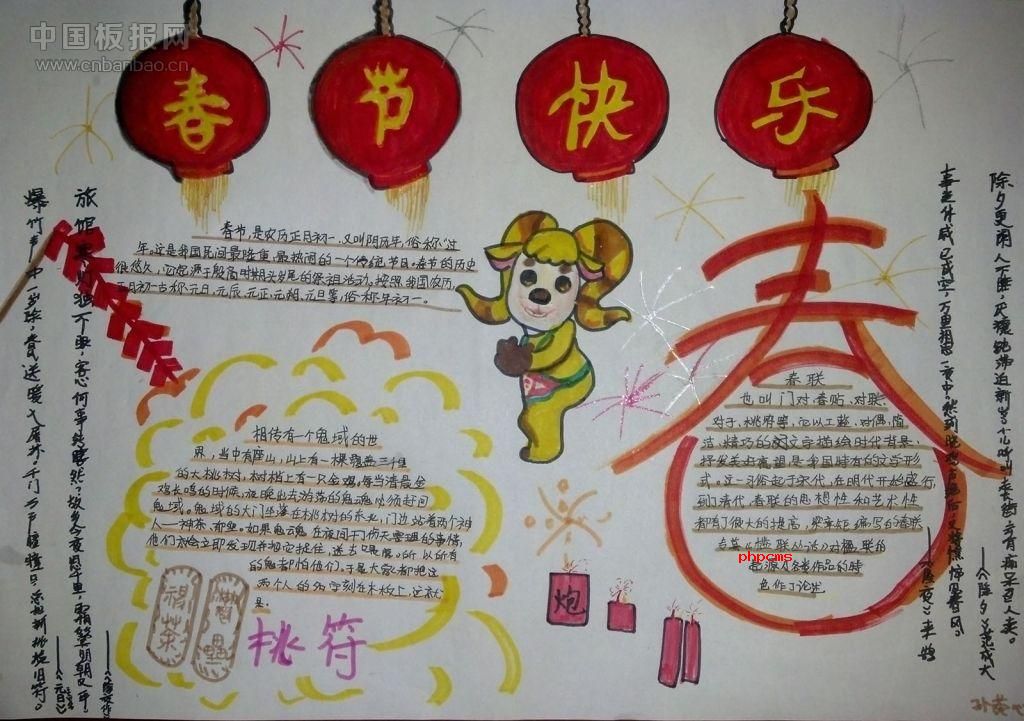 中国板报网
www.cnbanbao.cn
春节快乐
春节,是农历正月初一,又叫阴历年,俗称"过
年"。这是我国民间最隆重、最热闹的一个传统节日。春节的历史
很悠久,它起源于殷商时期
年头岁尾的祭祖活动。按照我国农历,
正月初一古称元日、元辰、元正、元朔、元旦等,俗称年初一。
相传有一个鬼域的世
界,当中有座山,山上有一棵覆盖三千里
的大桃树,树梢上有一只金鸡。每当清晨金
鸡长鸣的时候,夜晚出去游荡的鬼魂必须赶回
鬼域。鬼域的大门坐落在桃树的东北,门边站着两个神
人——神荼、郁垒。如果鬼魂在夜间干了伤天害理的事情,
他们就会立即发现并把它捉住,送去喂虎。所以所有
的鬼都怕他们,于是大家都把这
两个人的名字刻在木板上,这就
是。
桃符
春
春联
也叫门对、春贴、对联、
对子、桃符等,它以工整、对偶、简
洁、精巧的文字描绘时代背景,
抒发美好愿望,是我国特有的文学形
式。这一习俗起于宋代,在明代开始盛行,
到了清代,春联的思想性和艺术性
都有了很大的提高,梁章矩编写的春联
专著《楹联丛话》对楹联的
起源及各类作品的特
色作了论述
phpcms
炮
除夕更阑人不睡,厌禳钝滞迫新岁;小儿呼叫走长街,云有痴呆召人卖。
——《除夕》范成大
事关休戚已成空,万里相思一夜中。愁到晓鸡声绝后,又将憔悴见春风。
——《除夜》来鹄
旅馆寒灯独不眠,客心何事转凄然?故乡今夜思千里,霜鬓明朝又一年。
爆竹声中一岁除,春风送暖入屠苏。千门万户瞳瞳日,总把新桃换旧符。
——《元日》